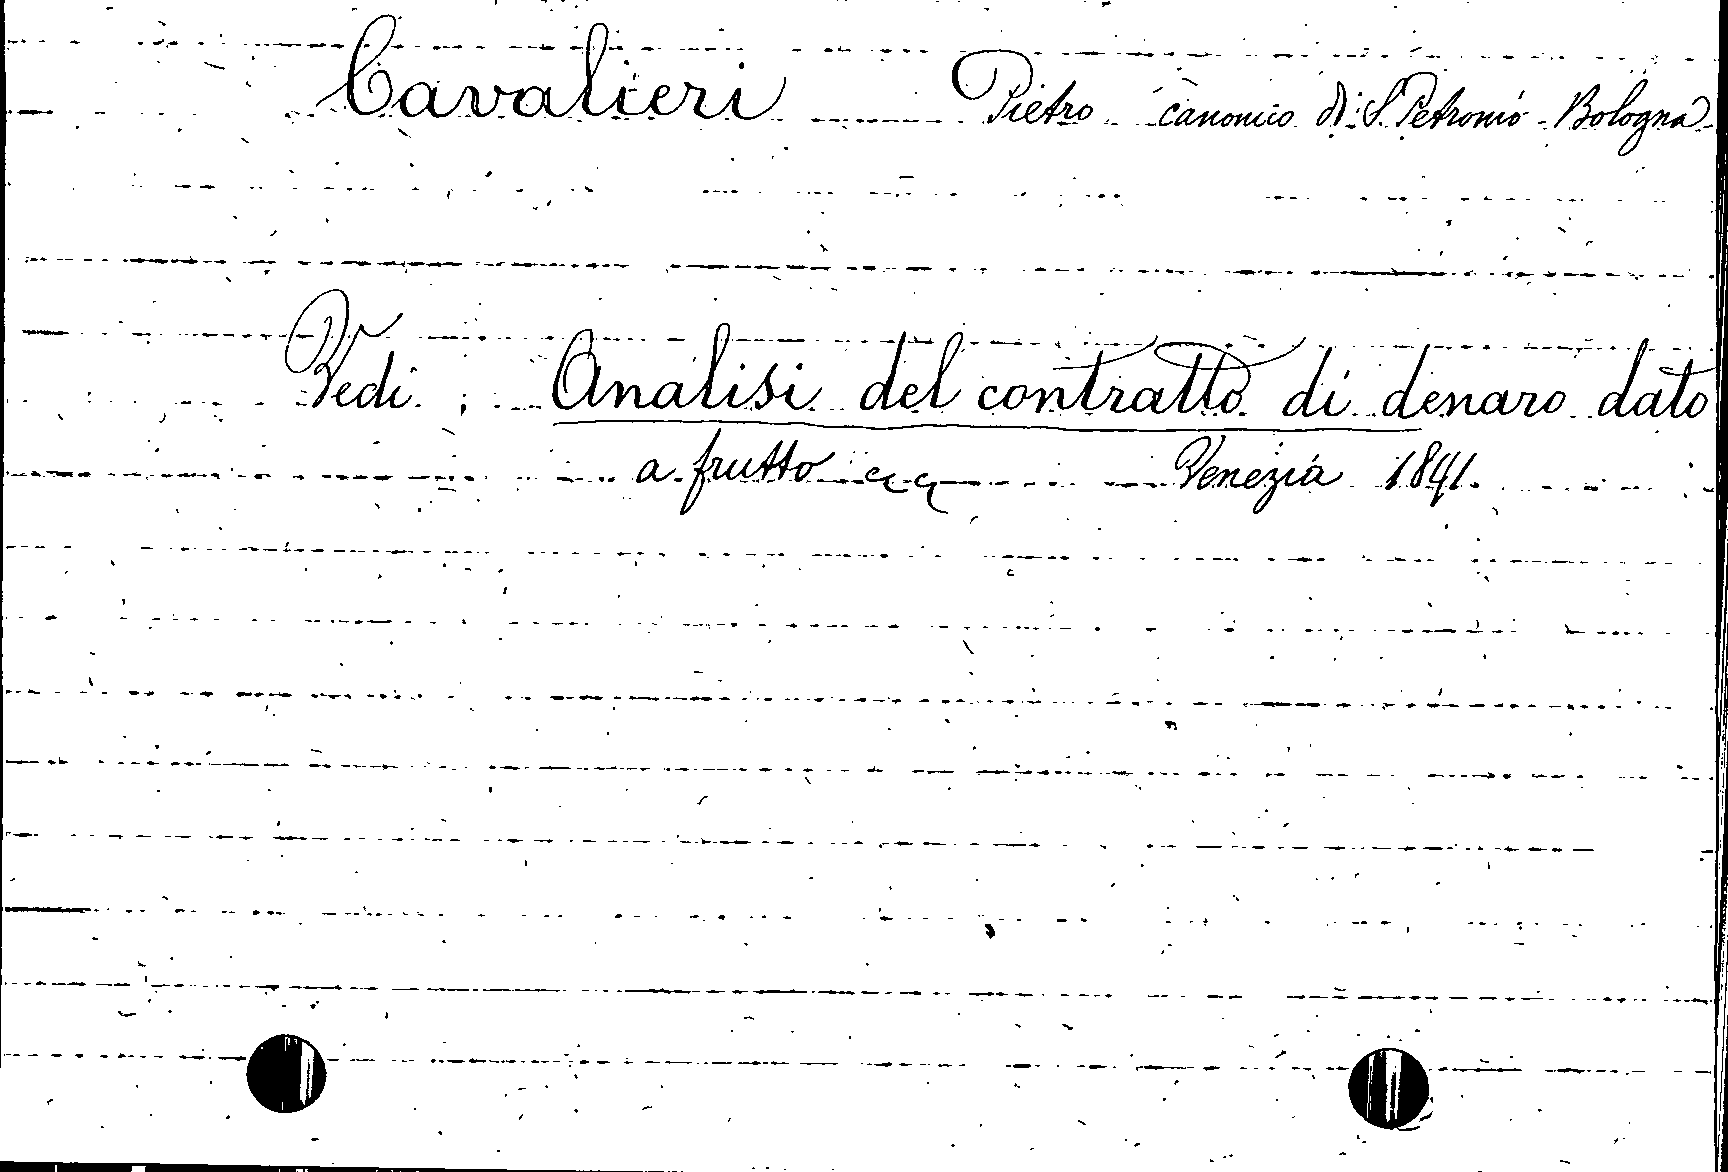 Cavalieri Pietro canonico di S. Petronio - Bologna
Vedi: Analisi del contratto di denaro dato
a frutto ecc Venezia 1841.